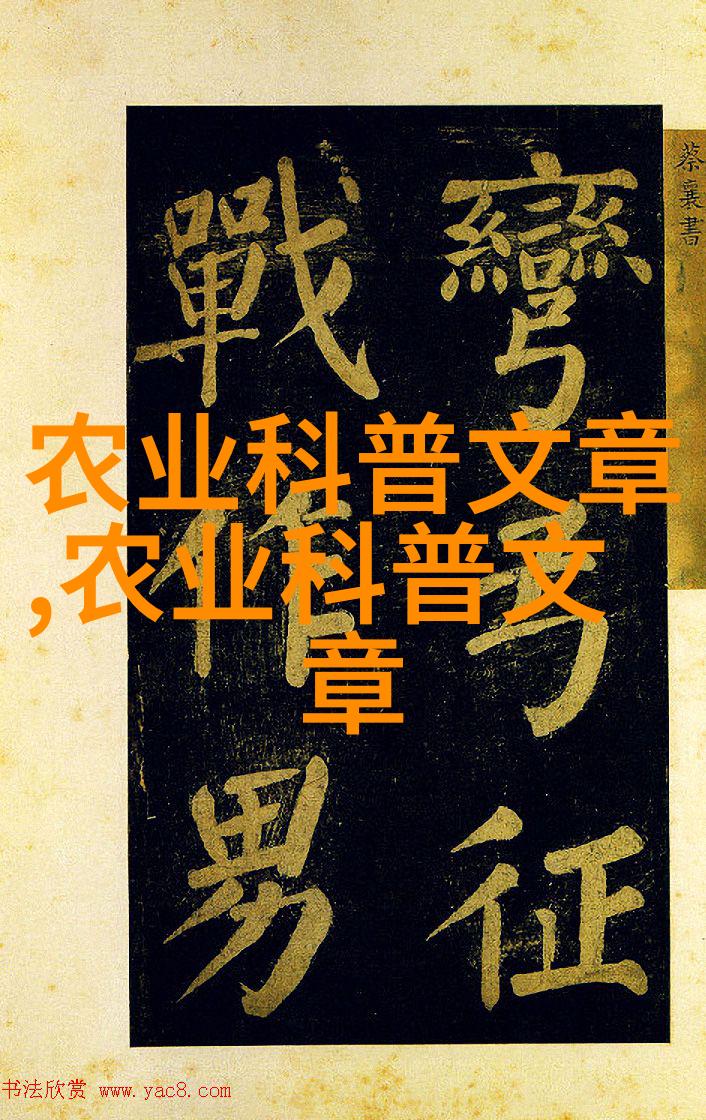 蔡襄書
彎弓征
戰作男
农业科普文章
,农业科普文
章
书法欣赏 www.yac8.com